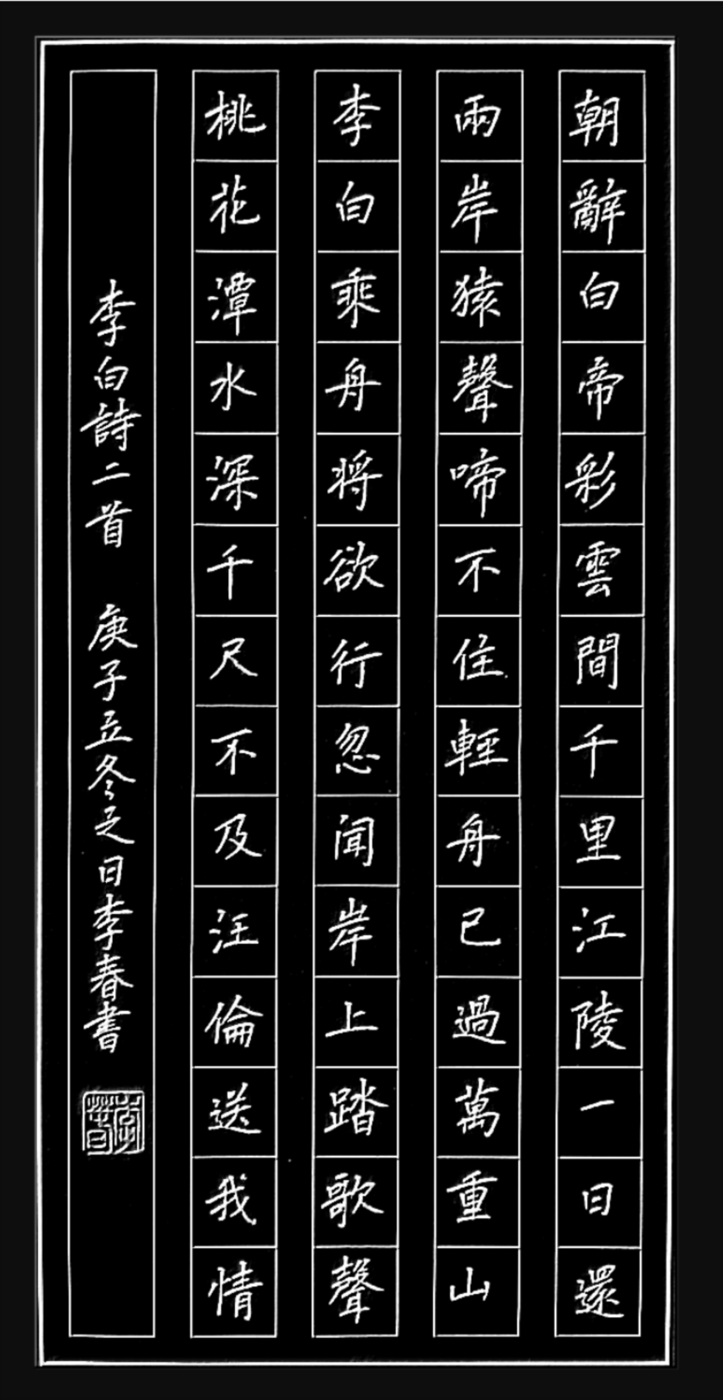 朝辭白帝彩雲間千里江陵一日還
兩岸猿聲啼不住輕舟已過萬重山
李白乘舟将欲行忽闻岸上踏歌聲
桃花潭水深千尺不及汪倫送我情
李白詩二首 庚子立冬之日李春書
李春